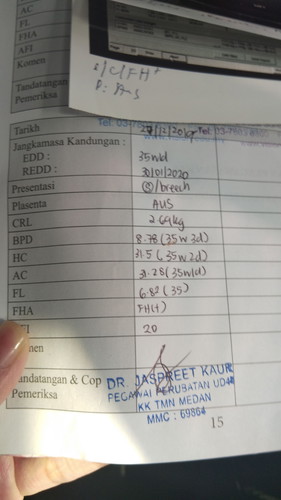 AC
FL
FHA
AFI
Komen
Tandatangan
Pemeriksa
S/C/FH+
P: AUS
Tarikh
Jangkamasa Kandungan :
35w1d
EDD :
REDD : 30/01/2020
Presentasi (S)/breech
Plasenta AUS
CRL 2.69kg
BPD 8.78 (35w3d)
HC 31.5 (35w2d)
AC 31.28 (35w1d)
FL 6.82 (35)
FHA FH(+)
20
men
andatangan & Cop
Pemeriksa
DR. JASPREET KAUR
PEGAWAI PERUBATAN UD44
KK TMN MEDAN
MMC : 69864
15